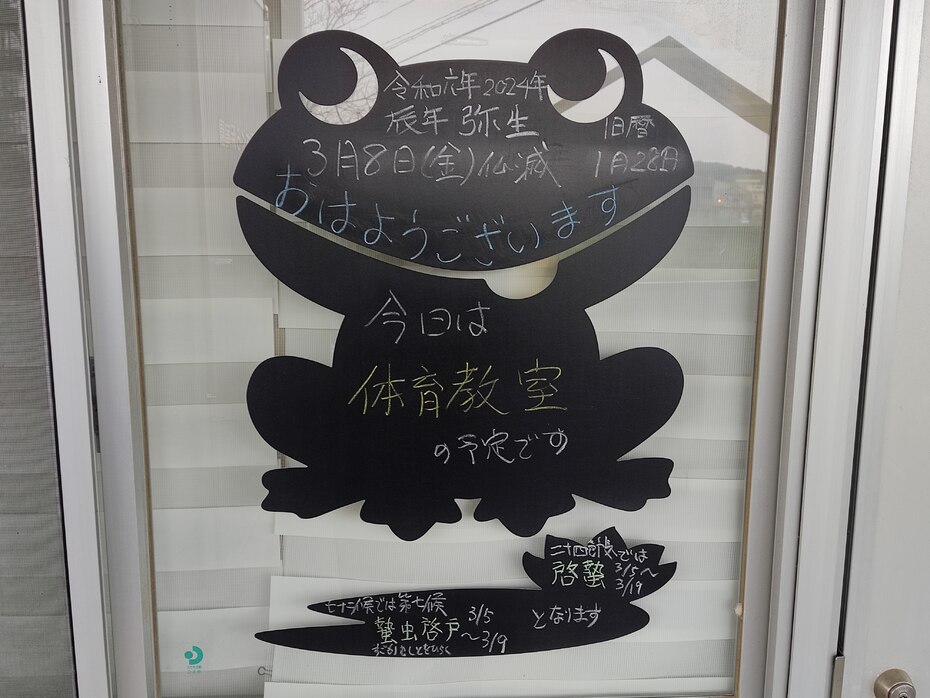 令和六年2024年
辰年 弥生
3月8日(金)仏滅
旧暦
1月28日
おはようございます
今日は
体育教室
の予定です
二十四節気では
啓蟄 3/5〜
3/19
七十二候では第七候
蟄虫啓戸 3/5
〜3/9
となります